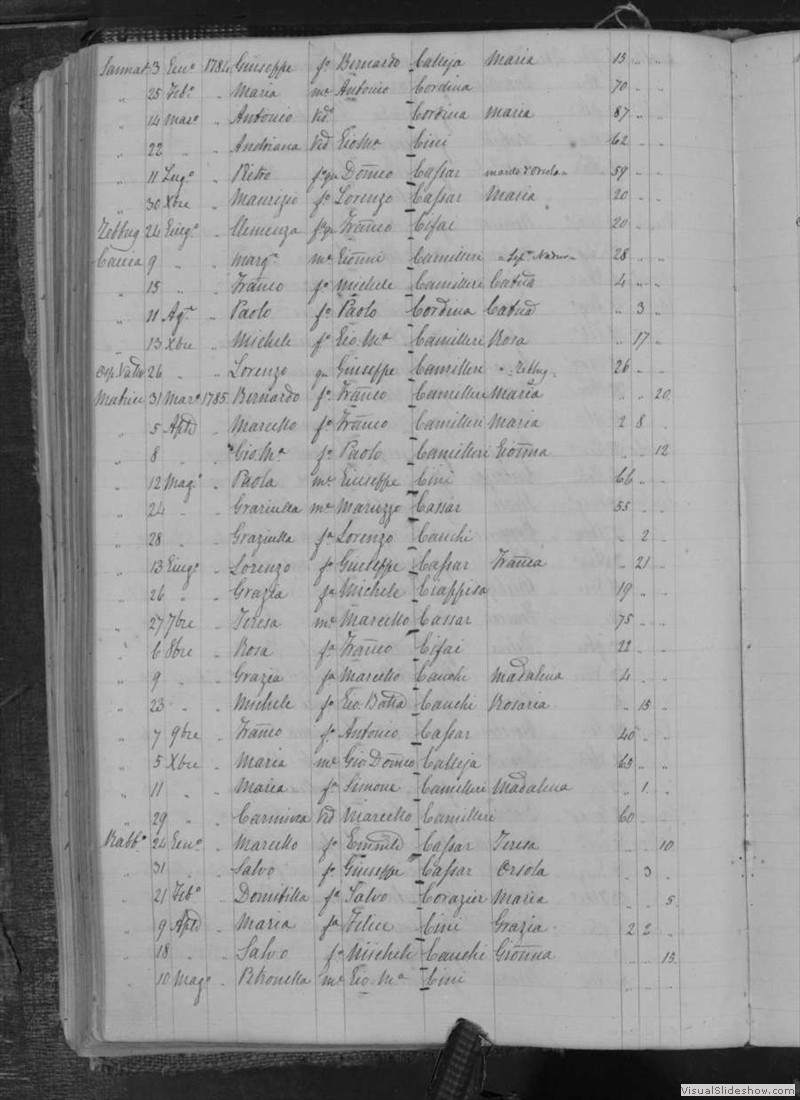 Sannat 3 Genº 1784 Giuseppe fº Bernardo Calleja Maria 15 " "
" 25 Febº " Maria me Antonio Cordina 70 " "
" 14 Marº " Antonio Vdº Cordina Maria 87 " "
" 22 " " Andriana Vid Gio Mª Cini 62 " "
" 11 Lugº " Pietro fº qu Domco Cassar marito d'Orsola 59 " "
" 30 Xbre " Maurizio fº Lorenzo Cassar Maria 20 " "
Zebbug 24 Giugº " Clemenza fª qu Franco Cifai 20 " "
Caccia 9 " " Margª me Gionni Camilleri 28 " "
" 15 " " Franco fº Michele Camilleri Catna 4 " "
" 11 Agº " Paolo fº Paolo Cordina Catna " 3 "
" 13 Xbre " Michele fº Gio. Mª Camilleri Rosa " 17 "
Osp. Vallta 26 " " Lorenzo qu Giuseppe Camilleri Zebbug 26 " "
Matrice 31 Marº 1785 Bernardo fº Franco Camilleri Maria " " 20
" 5 Aple " Marcello fº Franco Camilleri Maria 2 8 "
" 8 " Gio. Mª fº Paolo Camilleri Gionna " " 12
" 12 Magº " Paola me Giuseppe Cini 66 " "
" 24 " " Graziulla me Maruzzo Cassar 55 " "
" 28 " " Graziulla fª Lorenzo Cauchi " 2 "
" 13 Giugº " Lorenzo fº Giuseppe Cassar Franca " 21 "
" 26 " " Grazia fª Michele Ciappisa 19 " "
" 27 7bre " Teresa me Marcello Cassar 75 " "
" 6 8bre " Rosa fª Franco Cifai 22 " "
" 9 " " Grazia fª Marcello Cauchi Madalena 4 " "
" 23 " " Michele fº Gio. Batta Cauchi Rosaria " 15 "
" 7 9bre " Franco fº Antonio Cassar 40 " "
" 5 Xbre " Maria me Gio Domco Calleja 65 " "
" 11 " " Maria fª Simone Camilleri Madalena " 1 "
" 29 " " Carmina Vid Marcello Camilleri 60 " "
Rabbº 24 Genº " Marcello fº Cassar Teresa " " 10
" 31 " " Salvo fº Giuseppe Cassar Orsola " 3 "
" 21 Febº " Domitilla fª Salvo Corazier Maria " " 5
" 9 Aple " Maria fª Felice Cini Grazia 2 2 "
" 18 " " Salvo fº Michele Cauchi Gionna " " 15
" 10 Magº " Petronella me Gio. Mª Cini " " "
VisualSlideshow.com